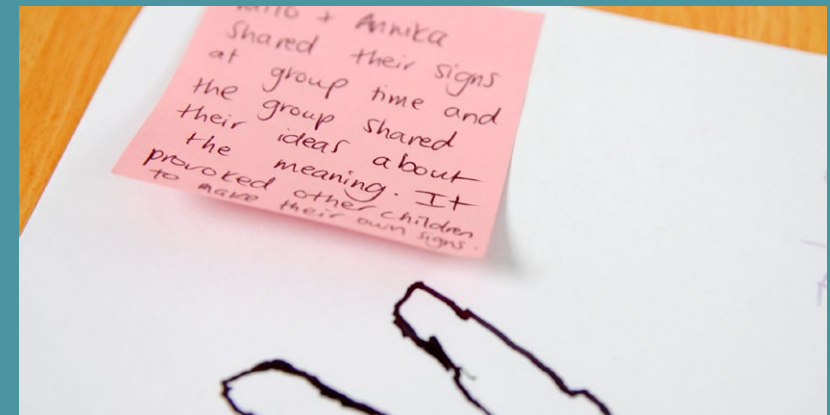 + Annika
shared their signs
at group time and
the group shared
their ideas about
the meaning. It
provoked other children
to make their own signs.